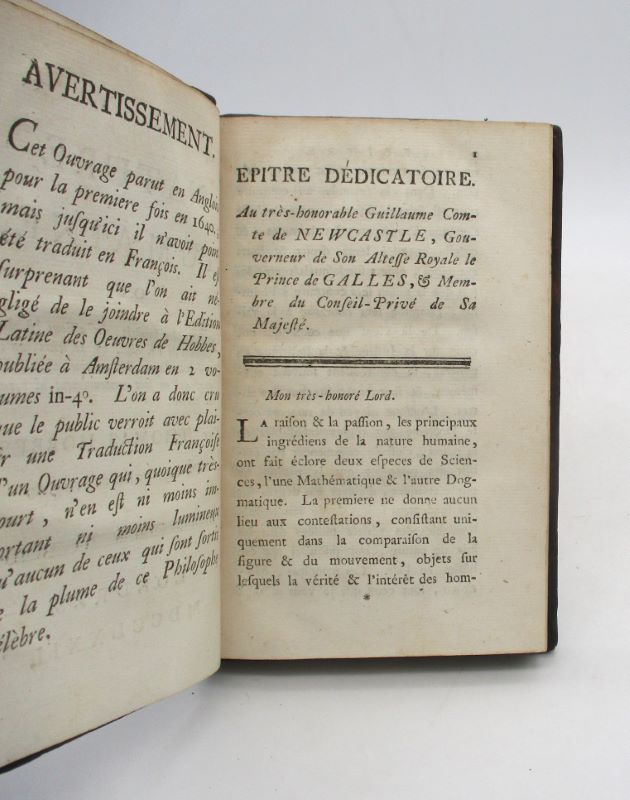 AVERTISSEMENT.
Cet Ouvrage parut en Anglois
pour la premiere fois en 1640.
mais juſqu'ici il n'avoit point
été traduit en François. Il eſt
ſurprenant que l'on ait né-
gligé de le joindre à l'Edition
Latine des Oeuvres de Hobbes,
publiée à Amſterdam en 2 vo-
lumes in-4º. L'on a donc cru
que le public verroit avec plai-
ſir une Traduction Françoiſe
d'un Ouvrage qui, quoique très-
court, n'en eſt ni moins im-
portant ni moins lumineux
qu'aucun de ceux qui ſont ſortis
de la plume de ce Philoſophe
célèbre.
1
EPITRE DÉDICATOIRE.
Au très-honorable Guillaume Com-
te de NEWCASTLE, Gou-
verneur de Son Alteſſe Royale le
Prince de GALLES, & Mem-
bre du Conſeil-Privé de Sa
Majeſté.
Mon très-honoré Lord.
LA raiſon & la paſſion, les principaux
ingrédiens de la nature humaine,
ont fait éclore deux eſpeces de Scien-
ces, l'une Mathématique & l'autre Dog-
matique. La premiere ne donne aucun
lieu aux conteſtations, conſiſtant uni-
quement dans la comparaiſon de la
figure & du mouvement, objets ſur
leſquels la vérité & l'intérêt des hom-
*